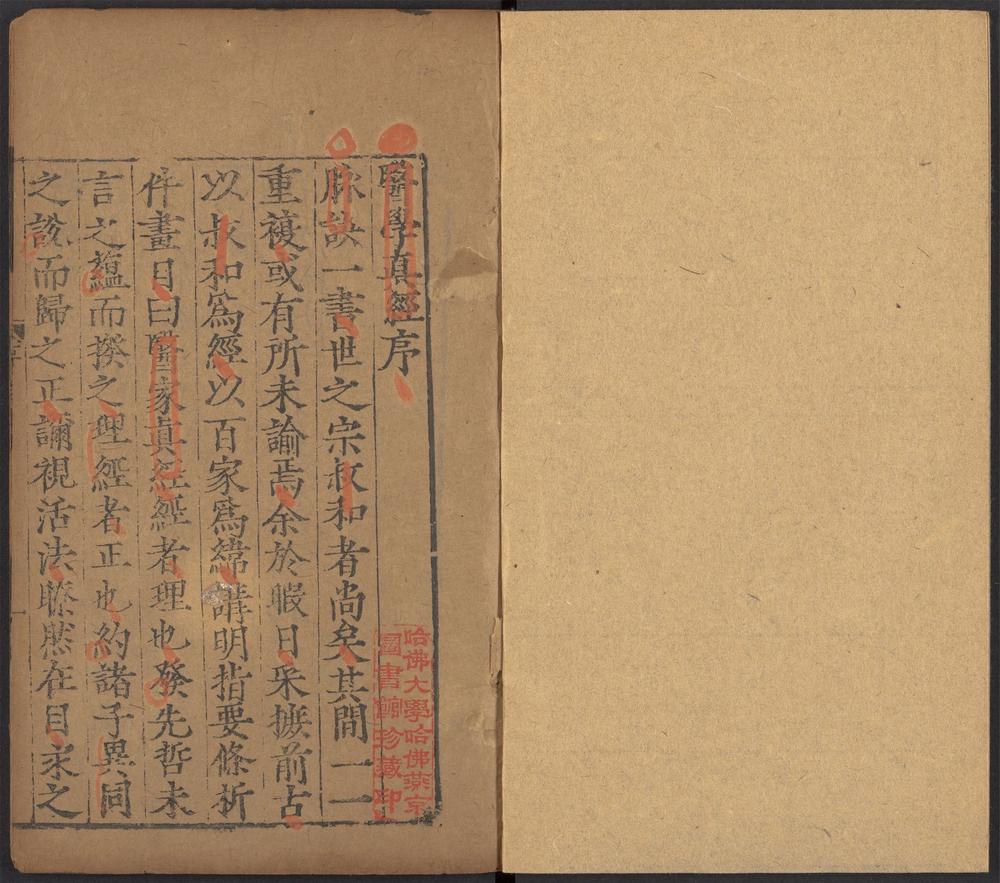 醫學真經序
脉訣一書世之宗叔和者尚矣其間一一
重複或有所未諭焉余於暇日采摭前古
以叔和爲經以百家爲緯講明指要條析
件畫目曰醫家真經經者理也發先哲未
言之蘊而揆之理經者正也約諸子異同
之說而歸之正諦視活法瞭然在目求之
哈佛大學哈佛燕京
圖書館珍藏印